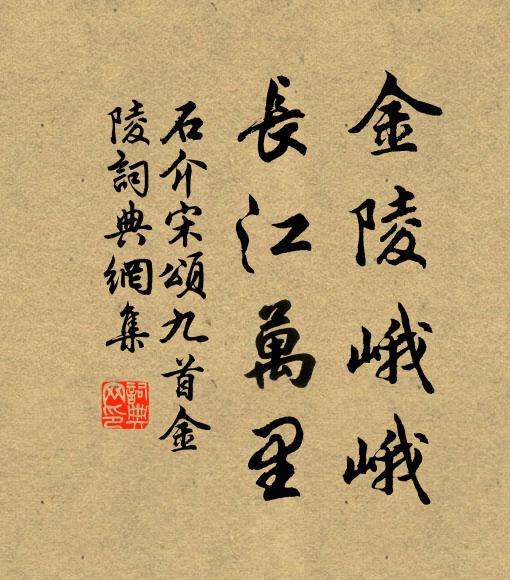 金陵峨峨
長江萬里
石介宋頌九首金
陵詞典網集
詞典网印